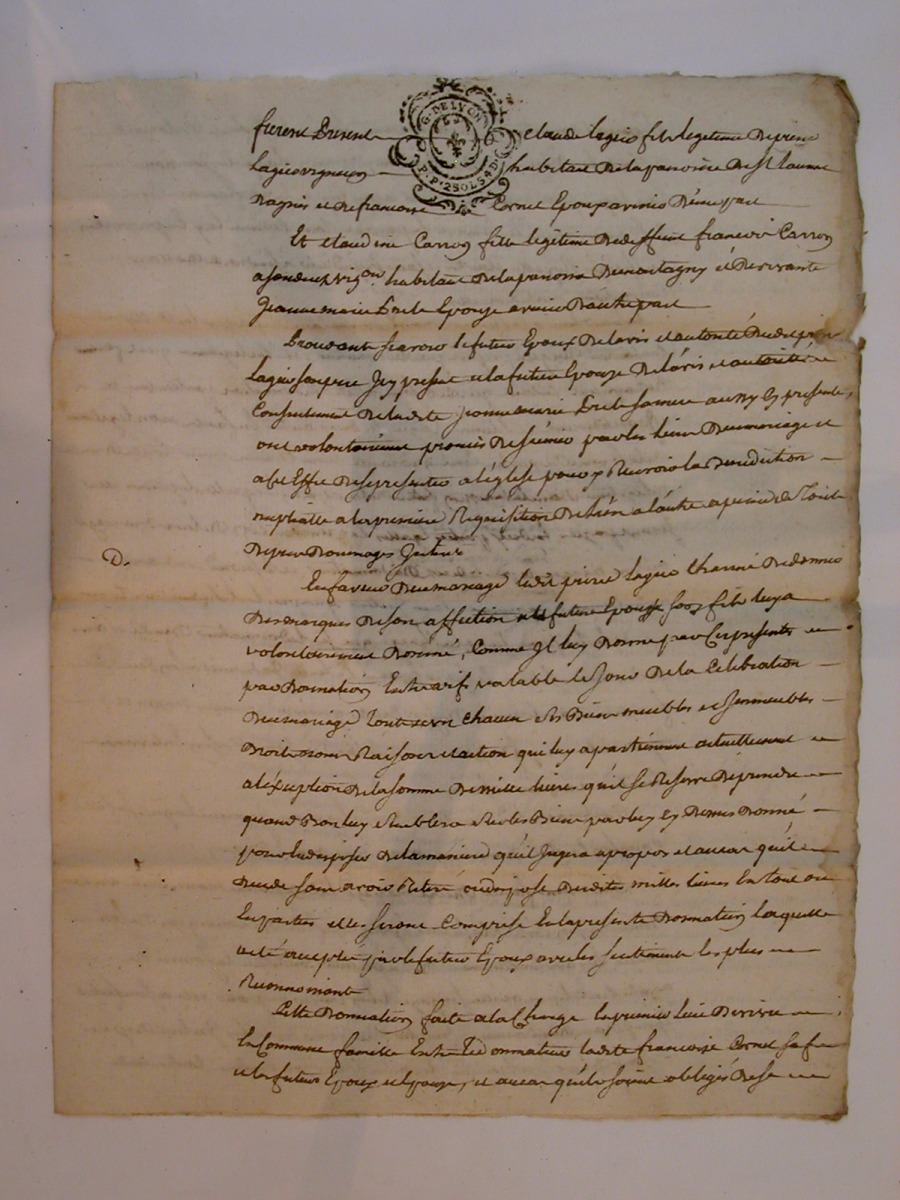 G. DE LYON
P.P. 2 SOLS 4 D.
furent presents Claude Lagier fils legitime de pierre
Lagier vigneron habitant de la paroisse de St Laurent
Dagnis et de francoise Cornet Epoux avenir d'une part
Et claudine Carron fille legitime de deffunt francois Carron
a son deceds vigon. habitant de la paroisse de montagny et de vivante
Jeanne marie Epouze avenir d'autre part
Procedants scavoir le futur Epoux de l'avis et autorité dudit pierre
Lagier son pere Icy present et la future Epouze de l'avis et autorité et
Consentement de ladite Jeanne marie sa mere aussy Icy presente,
ont volontairement promis de s'unir par les liens du mariage et
a cet Effet de se presenter a l'église pour y Recevoir la Benediction
nuptialle a la premiere Requisition de l'un a l'autre a peine de Touts
Depens Dommages Interets
D.
En faveur du mariage ledit pierre Lagier Charmé de donner
Des marques de son affection au futur Epoux son fils luy a
volontairement Donné, Comme Il luy Donne par Ces presentes
par Donnation Entre vifs valable le Jour de la Celebration
Du mariage Touts et un chacun ses Biens meubles et Immeubles
Droits noms Raisons et action qui luy apartiennent actuellement
a l'exception de la somme de mille livres qu'il se Reserve de prendre
quand Bon luy semblera sur les Biens par luy cy dessus Donné
pour En disposer de la maniere qu'il Jugera apropos et au cas qu'il
Decede sans avoir Retiré ou disposé desdites milles livres En tout ou
En parties elles seront Comprise En la presente Donnation laquelle
a eté acceptée par le futur Epoux avec les sentiments les plus
Reconnoissants
Cette Donnation faite a la Charge En premier lieu de vivre
En Commune famille Entre le donnateur ladite francoise Cornet sa fe
et les futurs Epoux et Epouze, et au cas qu'ils soient obligés de se